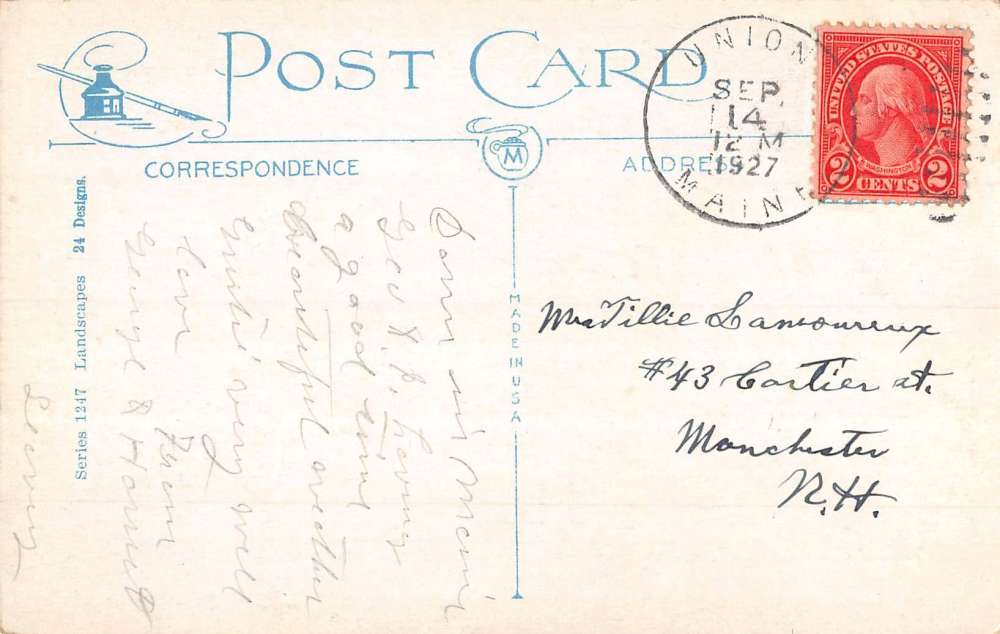 POST CARD
CORRESPONDENCE
ADDRESS
M
UNION
SEP.
14
12 M
1927
MAINE
UNITED STATES POSTAGE
WASHINGTON
2 CENTS 2
Series 1247 Landscapes 24 Designs.
MADE IN USA
Down in
having
a good time
weather
very well
love
From
George &
Mrs Tillie Lamoureux
#43 Cartier st.
Manchester
N.H.